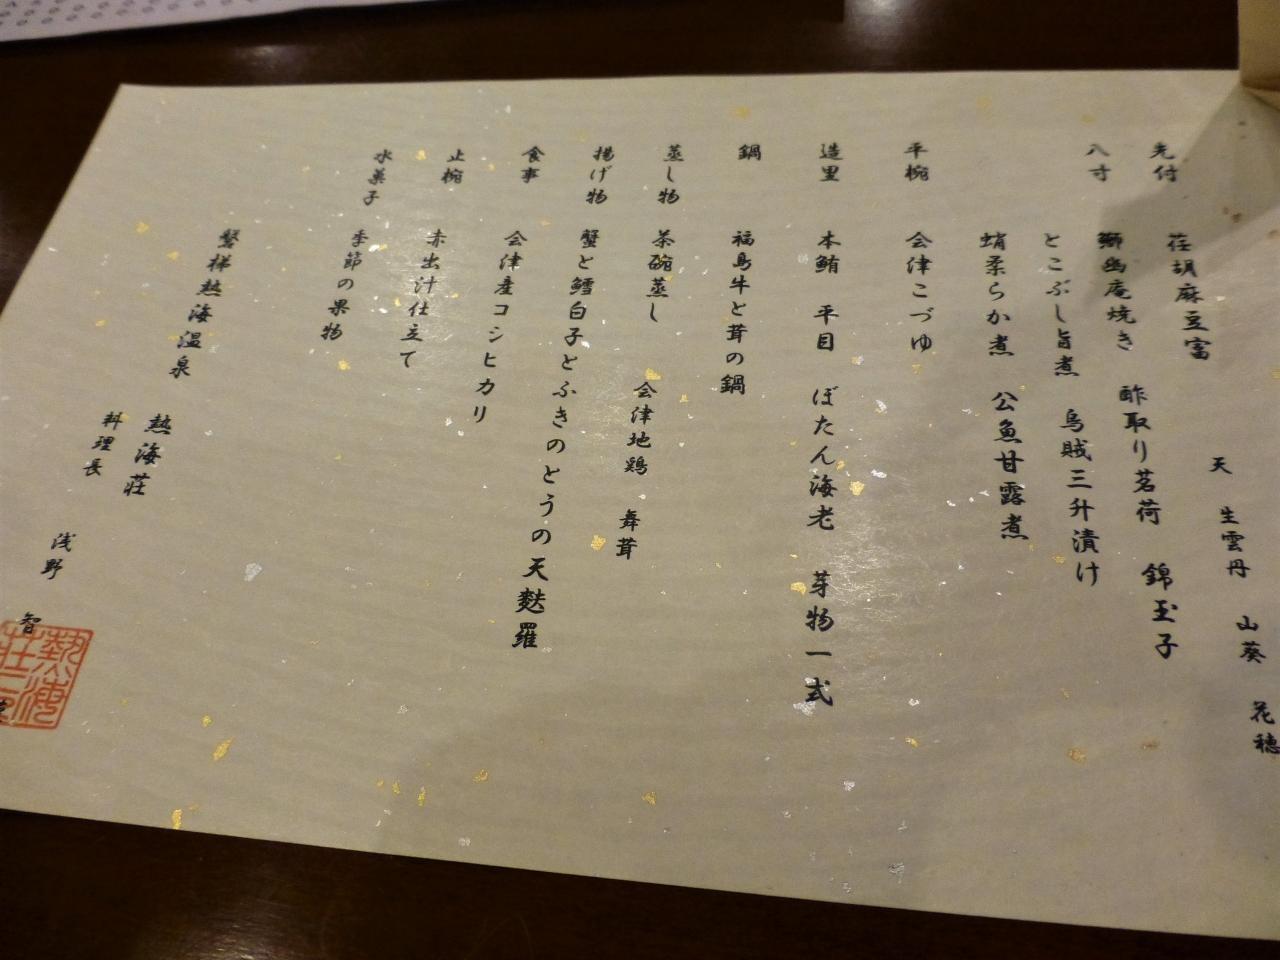 先付 荏胡麻豆富
天 生雲丹 山葵 花穂
八寸 鰤幽庵焼き 酢取り茗荷 錦玉子
とこぶし旨煮 烏賊三升漬け
蛸柔らか煮 公魚甘露煮
平椀 会津こづゆ
造里 本鮪 平目 ぼたん海老 芽物一式
鍋 福島牛と茸の鍋
蒸し物 茶碗蒸し 会津地鶏 舞茸
揚げ物 蟹と鱈白子とふきのとうの天麩羅
食事 会津産コシヒカリ
止椀 赤出汁仕立て
水菓子 季節の果物
磐梯熱海温泉
熱海荘
料理長 浅野 智
熱海荘